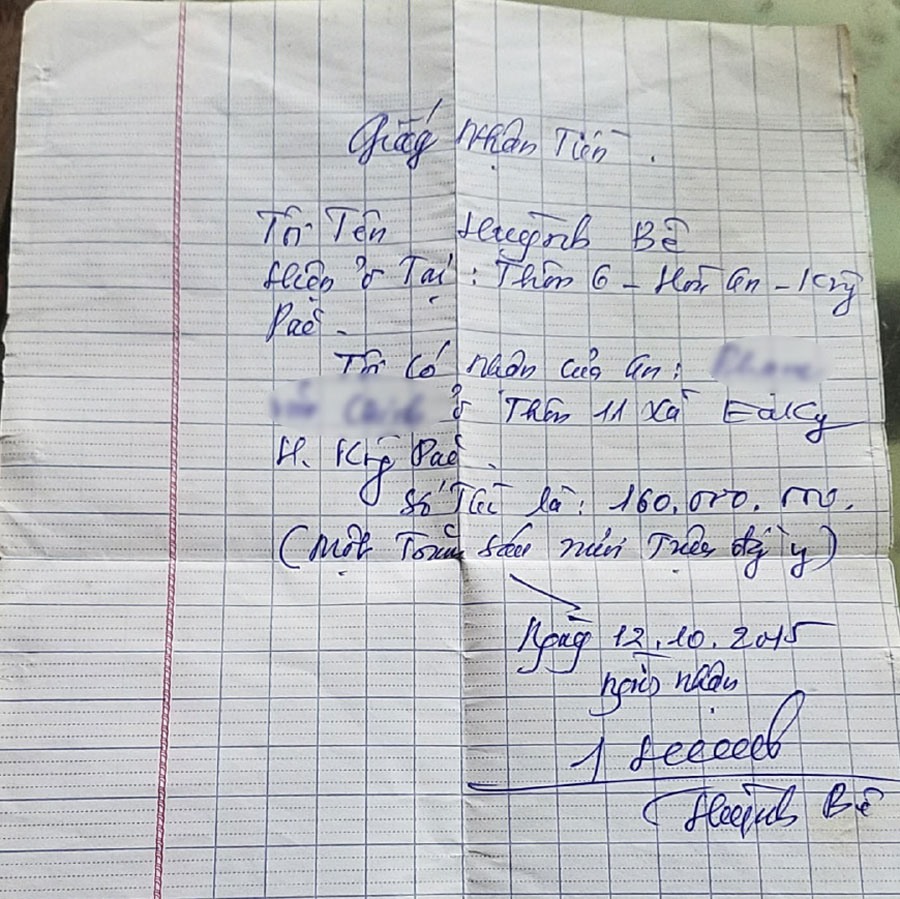 Giấy nhận Tiền.
Tôi Tên Huỳnh Bê
Hiện ở Tại: Thôn 6 - Hòa An - Krông
Pắc -
Tôi có nhận của An:
ở Thôn 11 xã EaKly
H. Krông Pắc.
Số Tiền là: 160.000.000.
(Một Trăm sáu mươi Triệu đồng y)
Ngày 12.10.2015
người nhận
Huỳnh Bê